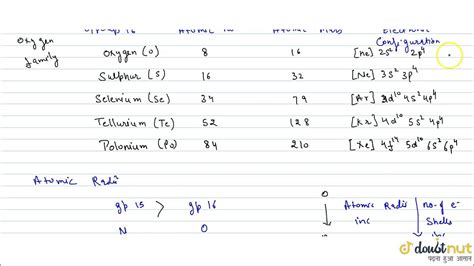 Group 16 Atomic No Atomic Mass Electronic
Configuration
Oxygen
family
Oxygen (O) 8 16 [He] 2s² 2p⁴
Sulphur (S) 16 32 [Ne] 3s² 3p⁴
Selenium (Se) 34 79 [Ar] 3d¹⁰ 4s² 4p⁴
Tellurium (Te) 52 128 [Kr] 4d¹⁰ 5s² 4p⁴
Polonium (Po) 84 210 [Xe] 4f¹⁴ 5d¹⁰ 6s² 6p⁴
Atomic Radii
gp 15 > gp 16
N O
O
Atomic Radii
inc
no. of e⁻
Shells
inc
doubtnut
पढ़ना हुआ आसान